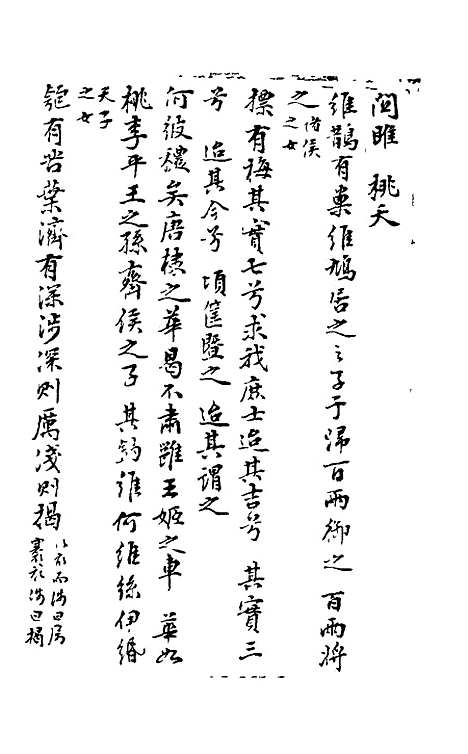 関雎 桃夭
維鵲有巢維鳩居之之子于歸百兩御之 百兩將
之 諸侯之女
摽有梅其實七兮求我庶士迨其吉兮 其實三
兮 迨其今兮 頃筐塈之 迨其謂之
何彼襛矣唐棣之華曷不肅雝王姬之車 華如
桃李平王之孫齊侯之子 其釣維何維絲伊緡
天子之女
匏有苦葉濟有深涉深則厲淺則揭 以衣而涉曰厲褰衣涉曰揭